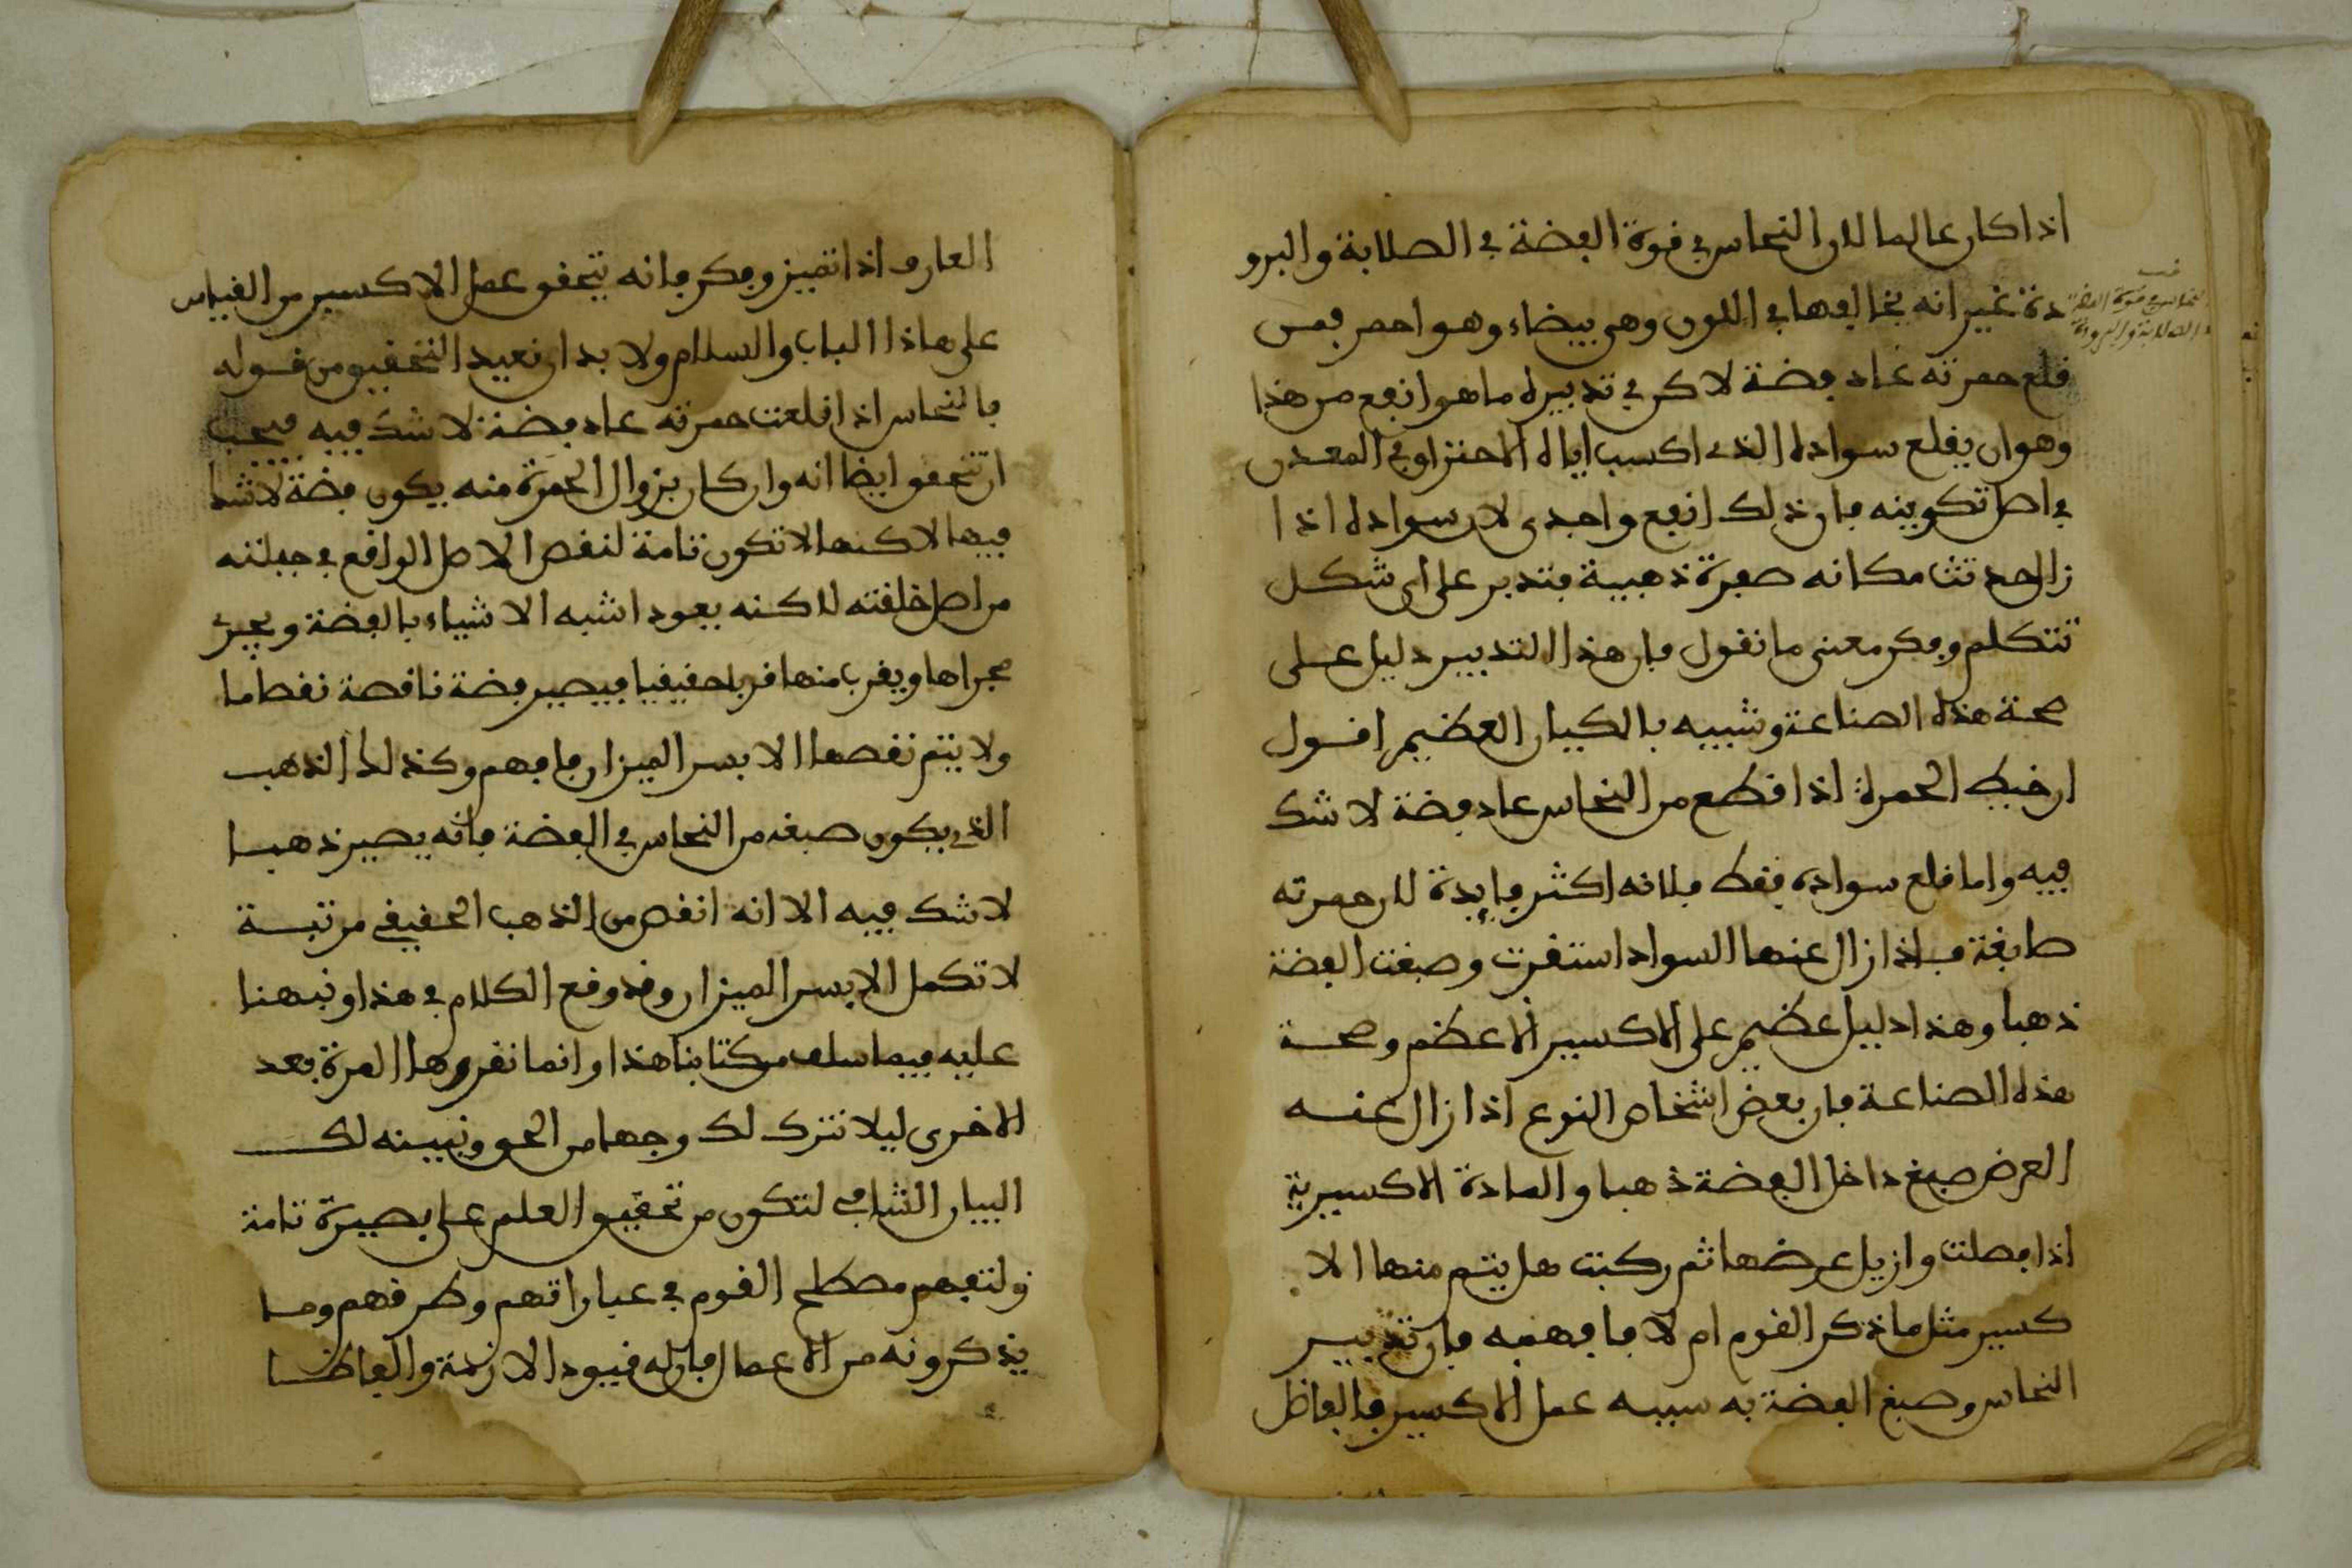 اذا كان عالما لان النحاس في قوة الفضة في الصلابة والبرو
دة غير انه يخالفها في اللون وهي بيضاء وهو احمر فمن
قلع حمرته عاد فضة لاكن في تدبيره ما هو انفع من هذا
وهو ان يقلع سواده الذي اكسب اياه الاحتراق في المعدن
في اصل تكوينه فان ذلك انفع واجدى لان سواده اذا
زال حدثت مكانه صفرة ذهبية فتدبر على اي شكل
تتكلم وفكر معنى ما نقول فان هذا التدبير دليل على
صحة هذه الصناعة وشبيه بالكيان العظيم اقول
ان خبط الحمرة اذا قطع من النحاس عاد فضة لا شك
فيه واما قلع سواده فقط فلانه اكثر فايدة لان حمرته
صابغة فاذا زال عنها السواد استقرت وصبغت الفضة
ذهبا وهذا دليل عظيم على الاكسير الاعظم وصحة
هذه الصناعة فان بعض اشخاص النوع اذا زال عنه
العرض صبغ داخل الفضة ذهبا والمادة الاكسيرية
اذا فصلت وازيل عرضها ثم ركبت هل يتم منها الا
كسير مثل ما ذكر القوم ام لا فافهمه فان تدبير
النحاس وصبغ الفضة به سببه عمل الاكسير فالفاضل
النحاس في قوة الفضة
في الصلابة والبرودة
العارف اذا تميز وفكر فانه يتحقق عمل الاكسير من القياس
على هاذا الباب والسلام ولا بد ان نعيد التحقيق من قوله
فالنحاس اذا قلعت حمرته عاد فضة لا شك فيه فيجب
ان تتحقق ايضا انه وان كان بزوال الحمرة منه يكون فضة لا شك
فيها لاكنها لا تكون تامة لنقص الاصل الواقع في جبلته
من اصل خلقته لاكنه يعود اشبه الاشياء بالفضة ويجري
مجراها ويقرب منها قربا حقيقيا فيصير فضة ناقصة نقصا ما
ولا يتم نقصها الا بسر الميزان فافهم وكذلك الذهب
الذي يكون صبغه من النحاس في الفضة فانه يصير ذهبا
لا شك فيه الا انه انقص من الذهب الحقيقي مرتبة
لا تكمل الا بسر الميزان وقد وقع الكلام في هذا ونبهنا
عليه فيما سلف من كتابنا هذا وانما نقررها المرة بعد
الاخرى ليلا نترك لك وجها من الحق ونبينه لك
البيان الشافي لتكون من تحقيق العلم على بصيرة تامة
ولتفهم مصطلح القوم في عباراتهم وطرقهم وما
يذكرونه من الاعمال فان له قيود الازمة والفاظا